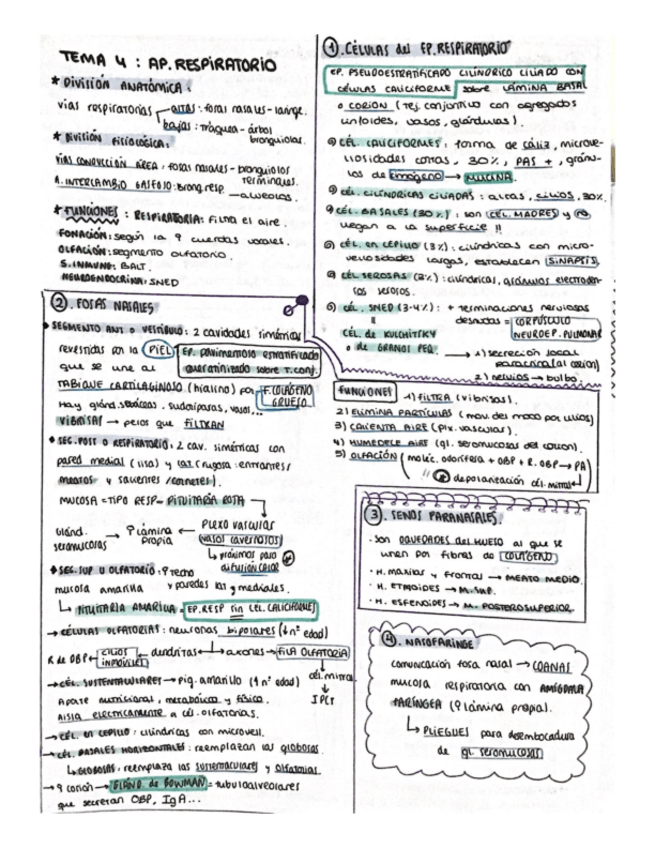 TEMA 4 : AP. RESPIRATORIO
* DIVISIÓN ANATÓMICA:
vías respiratorias altas: fosas nasales - laringe.
bajas: tráquea - árbol
bronquiolos.
* DIVISIÓN FISIOLÓGICA:
VÍAS CONDUCCIÓN AÉREA: fosas nasales - bronquiolos
terminales.
A. INTERCAMBIO GASEOSO: bronq. resp → alveolos.
* FUNCIONES: RESPIRATORIA: Filtra el aire.
FONACIÓN: según la cuerdas vocales.
OLFACIÓN: segmento olfatorio.
S. INMUNE: BALT.
NEUROENDOCRINA: SNED
① CÉLULAS del EP. RESPIRATORIO
EP. PSEUDOESTRATIFICADO CILÍNDRICO CILIADO CON
CÉLULAS CALICIFORMES sobre LÁMINA BASAL
o CORION (tej. conjuntivo con agregados
linfoides, vasos, glándulas).
CÉL. CALICIFORMES: forma de cáliz, microve-
llosidades cortas, 30%, PAS +, gránu-
los de → MUCINA.
CÉL. CILÍNDRICAS CILIADAS: altas, cilios, 30%.
CÉL. BASALES (30%): son CÉL. MADRES y no
llegan a la superficie !!
CÉL. EN CEPILLO (3%): cilíndricas con micro-
vellosidades largas, establecen SINAPSIS.
CÉL. SEROSAS (3%): cilíndricas, gránulos electroden-
sos serosos.
CÉL. SNED (3-4%): + terminaciones nerviosas
= desnudas = CORPÚSCULO
NEUROEP. PULMONAR
CÉL. de KULCHITSKY
o de GRANOS PEQ. → 1) secreción local
paracrina (al corion)
2) nervios → bulbo.
② FOSAS NASALES
• SEGMENTO ANT O VESTÍBULO: 2 cavidades simétricas
revestidas por la PIEL EP. pavimentoso estratificado
queratinizado sobre T. conj.
que se une al
TABIQUE CARTILAGINOSO (hialino) por F. COLÁGENO
GRUESO
Hay glánd. sebáceas, sudoríparas, vasos...
VIBRISAS → pelos que FILTRAN
• SEG. POST O RESPIRATORIO: 2 cav. simétricas con
pared medial (lisa) y lat (rugosa: entrantes/
meatos y salientes/cornetes).
MUCOSA = TIPO RESP = PITUITARIA ROJA
Glánd. ← lámina ← Plexo vasculares
seromucosas propia vasos cavernosos
↳ próximos para
difusión calor
• SEG. SUP U OLFATORIO: techo
mucosa amarilla y paredes lat y mediales.
↳ PITUITARIA AMARILLA = EP. RESP sin CÉL. CALICIFORMES
→ CÉLULAS OLFATORIAS: neuronas bipolares (↓ nº edad)
R de OBP ← cilios inmóviles ← dendritas → axones → FILA OLFATORIA
cél. mitral
→ CÉL. SUSTENTACULARES → pig. amarillo (↑ nº edad)
Aporte nutricional, metabólico y físico.
AISLA ELÉCTRICAMENTE a cél. olfatorias.
→ CÉL. EN CEPILLO: cilíndricas con microvell.
→ CÉL. BASALES HORIZONTALES: reemplazan las globosas.
↳ GLOBOSAS: reemplaza las sustentaculares y olfatorias.
→ corion → GLÁND. de BOWMAN = tubuloalveolares
que secretan OBP, IgA...
FUNCIONES → 1) FILTRA (vibrisas).
2) ELIMINA PARTÍCULAS (mov. del moco por cilios)
3) CALIENTA AIRE (plx. vascular).
4) HUMEDECE AIRE (gl. seromucosas del corion).
5) OLFACIÓN (moléc. odorífera + OBP + R. OBP → PA)
despolarización cél. mitral
③ SENOS PARANASALES.
• Son OQUEDADES del HUESO al que se
unen por fibras de COLÁGENO
• H. MAXILAR y FRONTAL → MEATO MEDIO.
• H. ETMOIDES → M. SUP.
• H. ESFENOIDES → M. POSTEROSUPERIOR.
④. NASOFARINGE
comunicación fosa nasal → COANAS
mucosa respiratoria con AMÍGDALA
FARÍNGEA (lámina propia).
↳ PLIEGUES para desembocadura
de gl. seromucosas